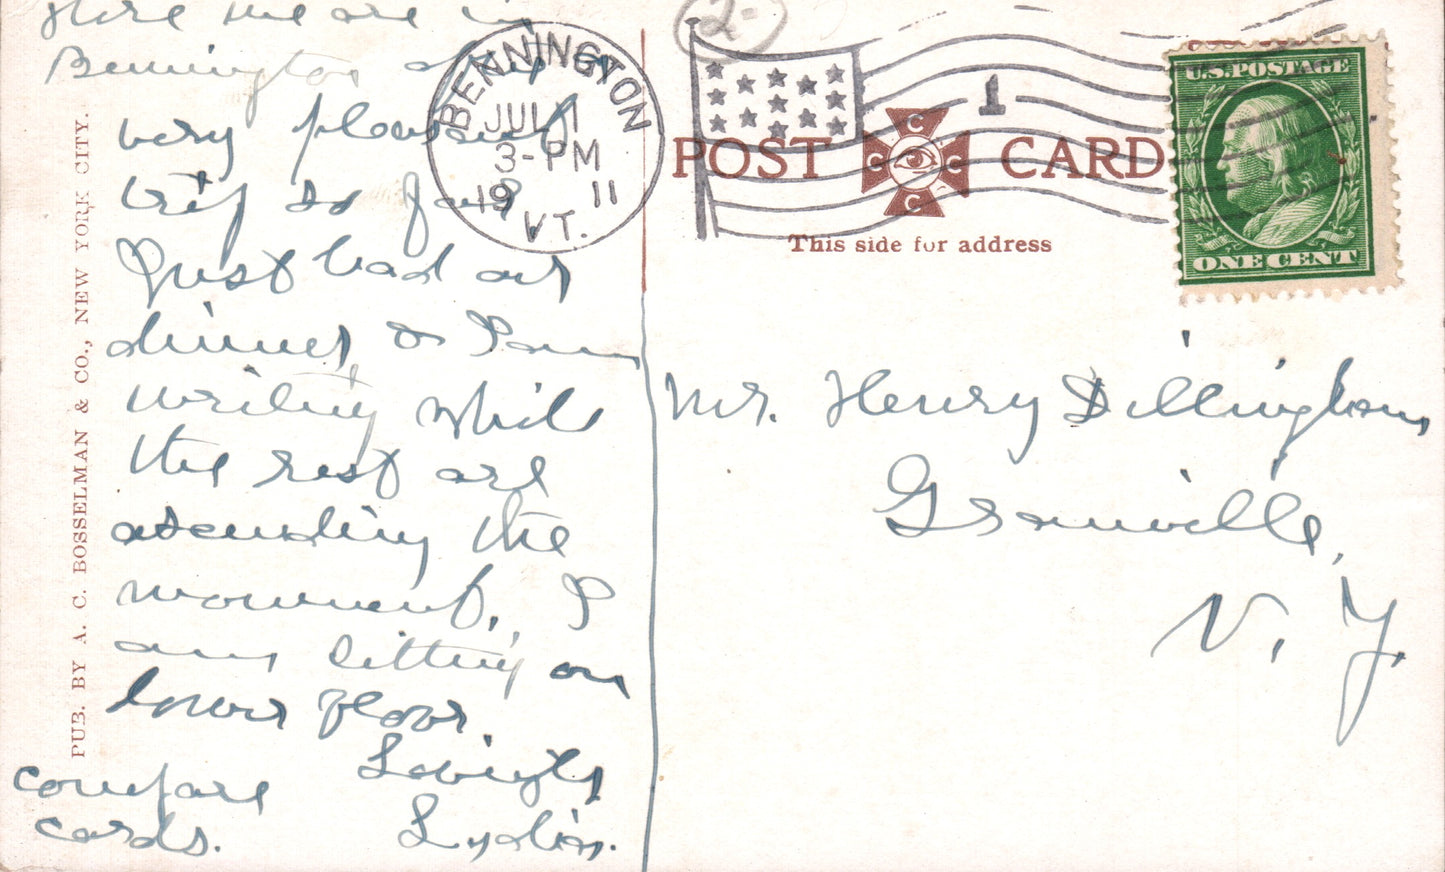 Here we are in
Bennington after a
very pleasant
trip so far
Just had our
dinner, & I am
writing while
the rest are
ascending the
monument, I
am sitting on
lower floor.
Lovingly
Lydia.
compare
cards.
PUB. BY A. C. BOSSELMAN & CO., NEW YORK CITY.
BENNINGTON
JUL 1
3-PM
19 11
VT.
2-
1
POST CARD
C
C C
C
This side for address
U.S. POSTAGE
ONE CENT
Mr. Henry Dillingham,
Granville,
N. Y.